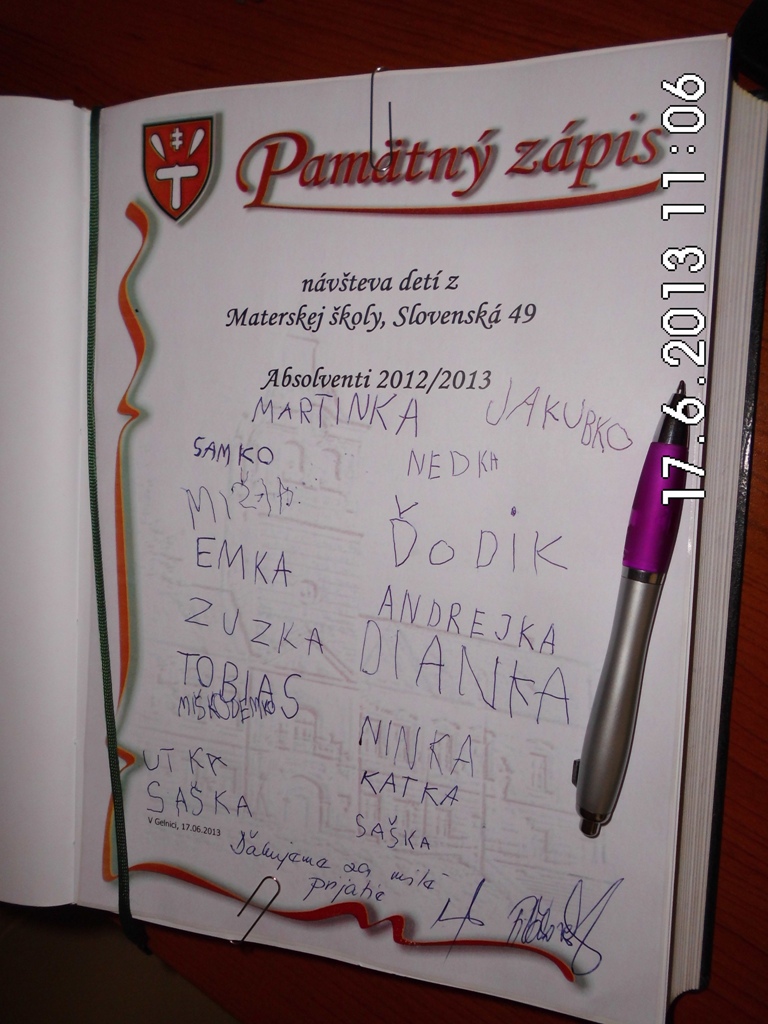 Pamätný zápis
návšteva detí z
Materskej školy, Slovenská 49
Absolventi 2012/2013
MARTINKA JAKUBKO
SAMKO NEDKA
ĎODIK
EMKA
ANDREJKA
ZUZKA
DIANKA
TOBIAS
MIŠKO DEMKO
NINKA
KATKA
SAŠKA
SAŠKA
V Gelnici, 17.06.2013
Ďakujeme za milé
prijatie
17.6.2013 11:06